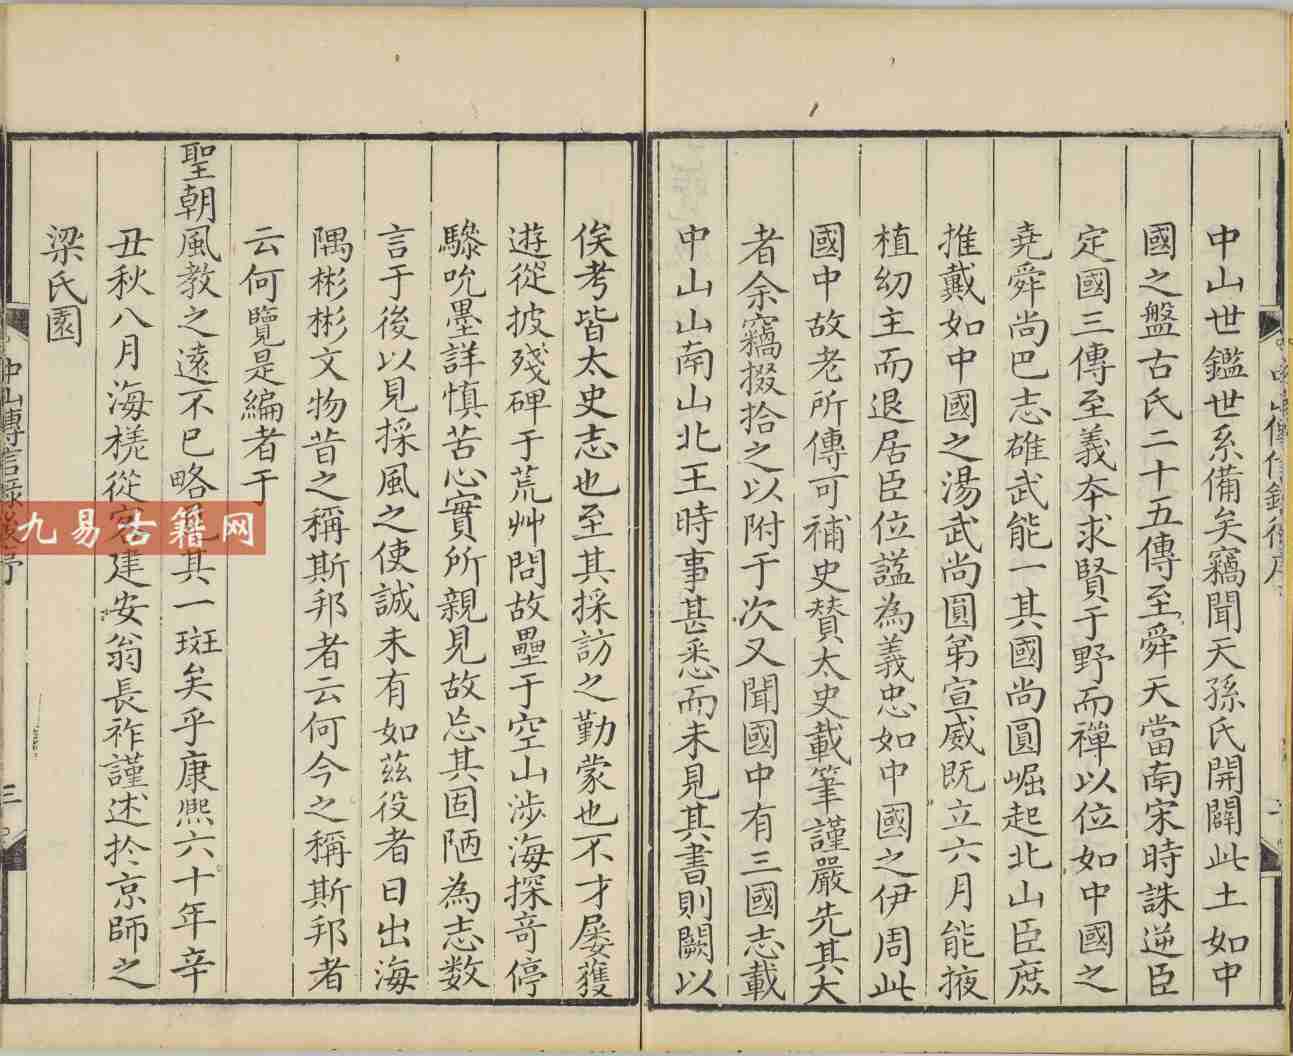 中山世鑑世系備矣竊聞天孫氏開闢此土如中
國之盤古氏二十五傳至舜天當南宋時誅逆臣
定國三傳至義本求賢于野而禪以位如中國之
堯舜尚巴志雄武能一其國尚圓崛起北山臣庶
推戴如中國之湯武尚圓弟宣威既立六月能掖
植幼主而退居臣位謚為義忠如中國之伊周此
國中故老所傳可補史贊太史載筆謹嚴先其大
者余竊掇拾之以附于次又聞國中有三國志載
中山山南山北王時事甚悉而未見其書則闕以
俟考皆太史志也至其採訪之勤蒙也不才屡獲
遊從披殘碑于荒艸問故壘于空山涉海探竒停
驂吮墨詳慎苦心實所親見故忘其固陋為志数
言于後以見採風之使誠未有如茲役者日出海
隅彬彬文物昔之稱斯邦者云何今之稱斯邦者
云何覽是編者于
聖朝風教之遠不已略其一斑矣乎康熙六十年辛
丑秋八月海槎從客建安翁長祚謹述扵京師之
梁氏園
中山傳信錄後序
三
九易古籍网